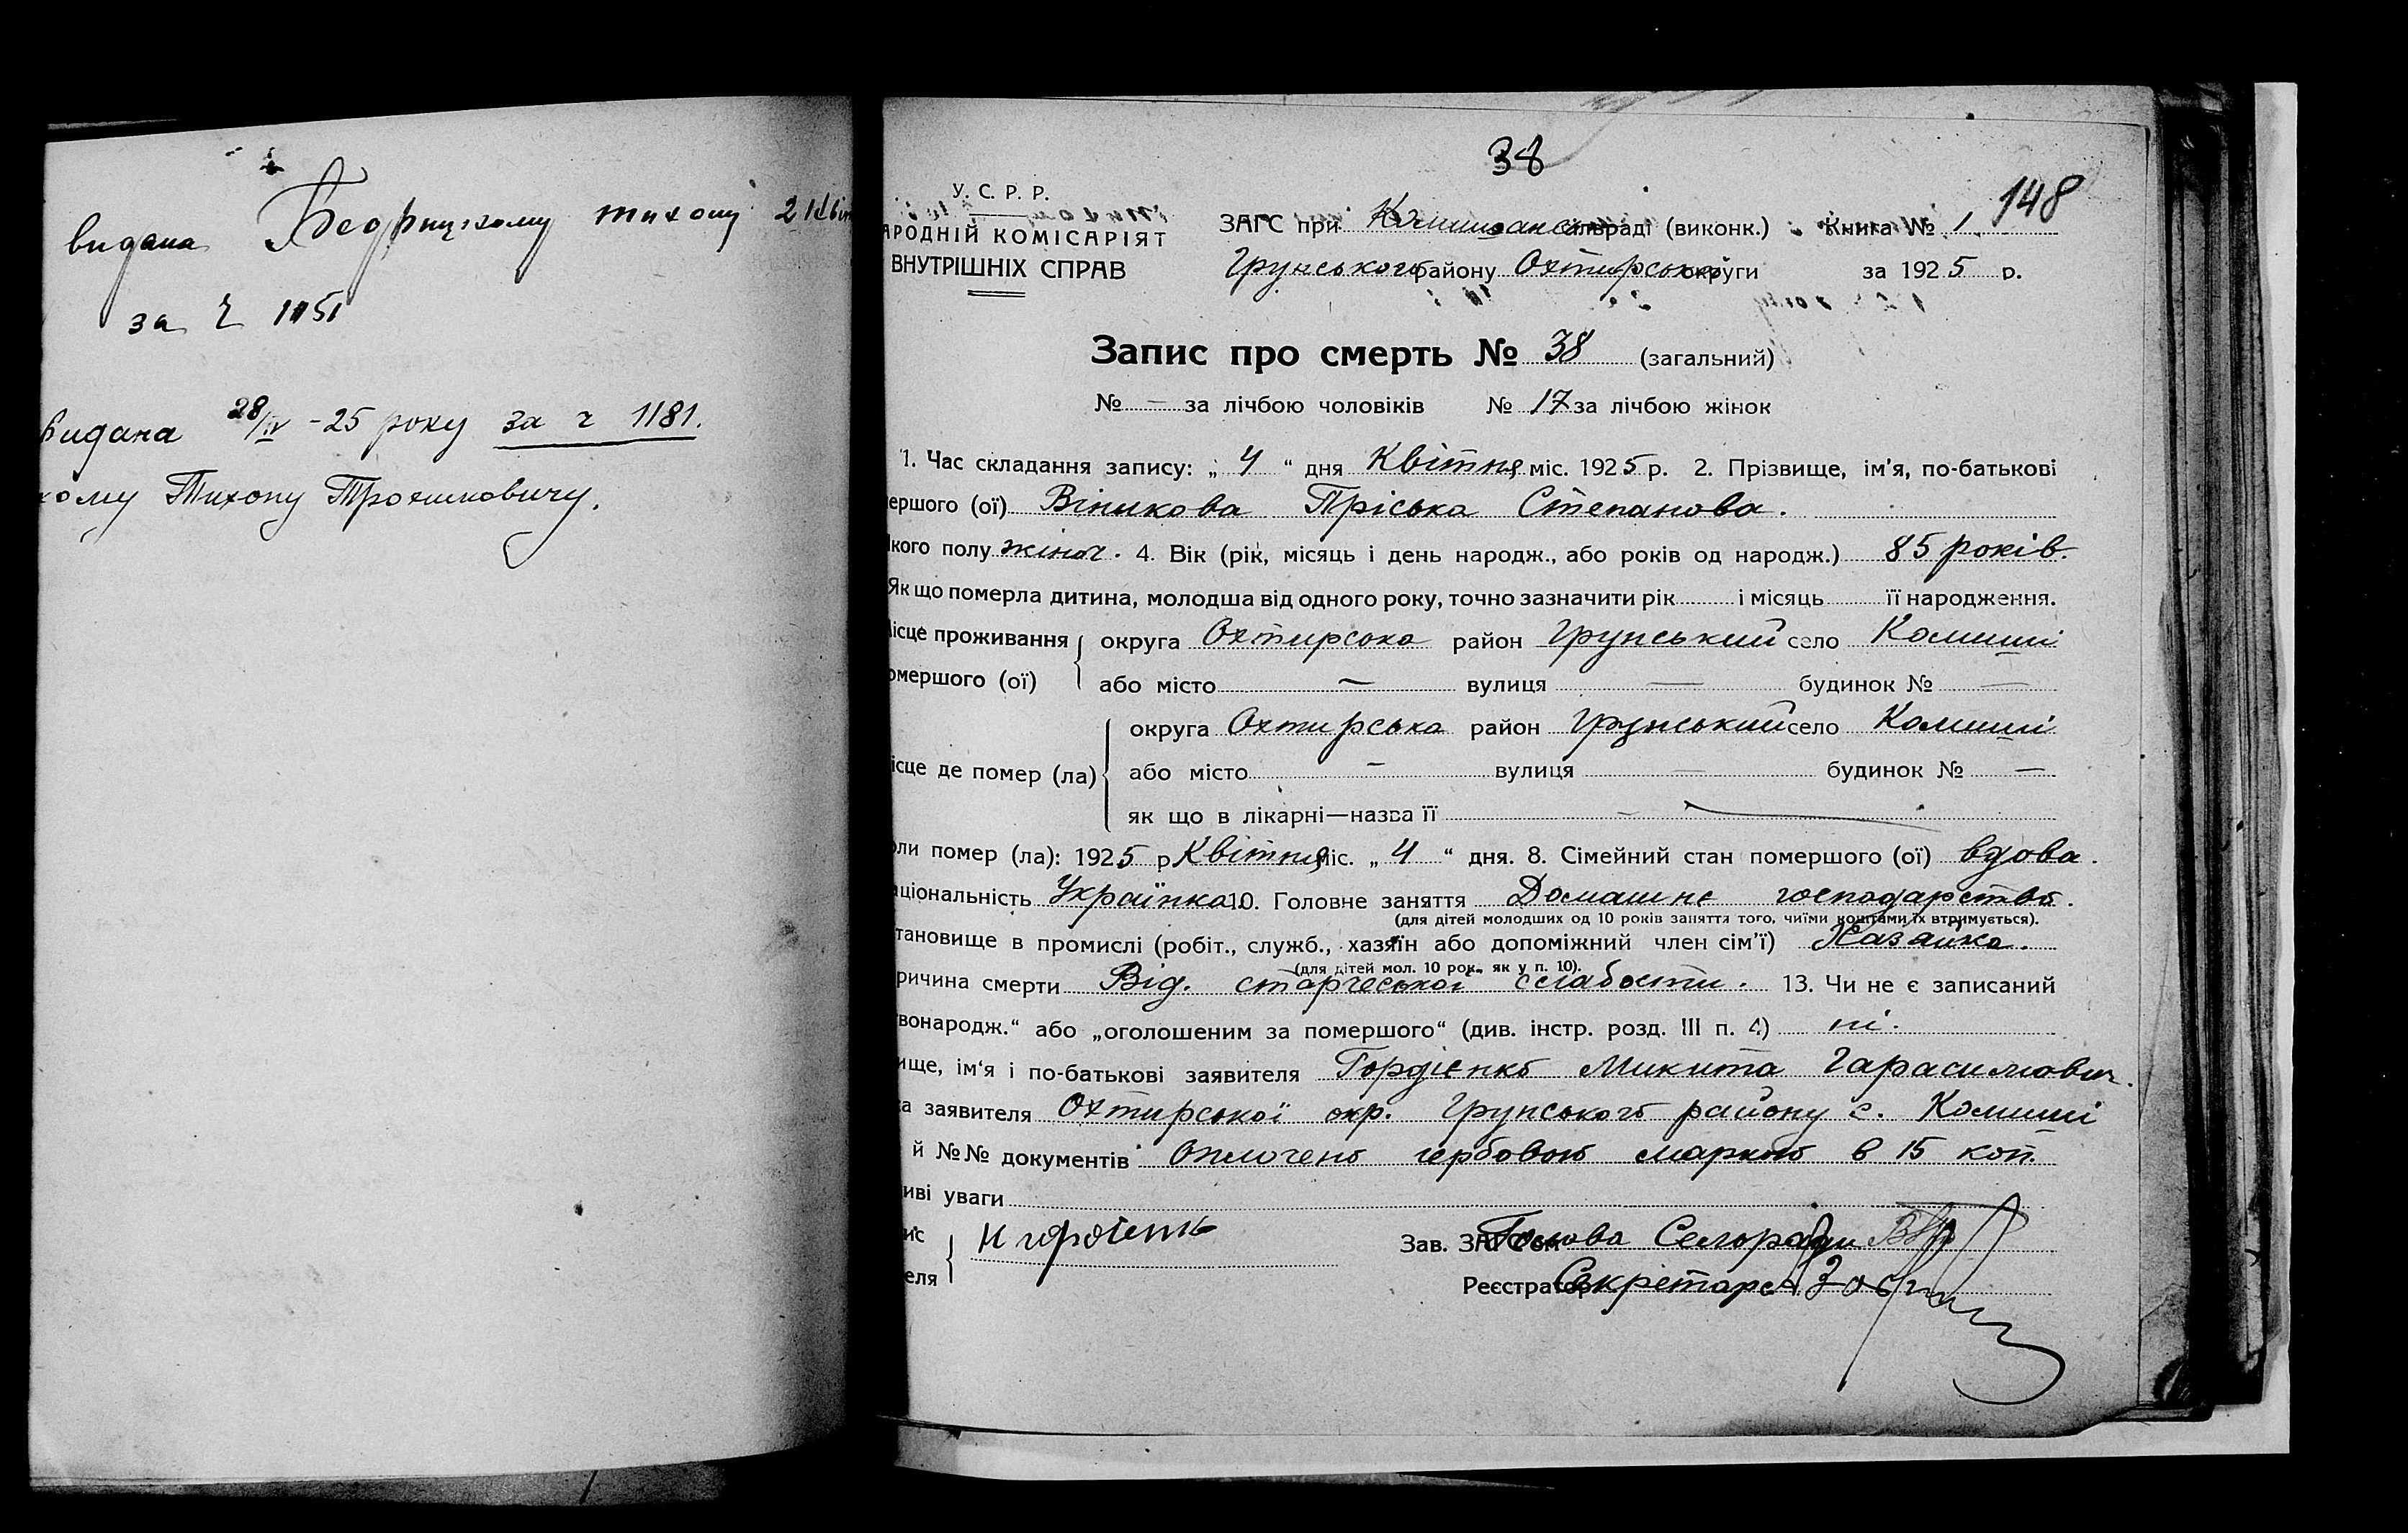 видана Бедрицкому тихону 21 Кві
за Ч 1151
видана 28/IV -25 року за ч 1181.
кому Тихону Трохимовичу.
38
148
У. С. Р. Р.
АРОДНІЙ КОМІСАРІЯТ
ВНУТРІШНІХ СПРАВ
ЗАГС при Комишанск сільраді (виконк.) Книга № 1
Грунського району Охтирської округи за 1925 р.
Запис про смерть № 38 (загальний)
№ — за лічбою чоловіків № 17 за лічбою жінок
1. Час складання запису: „ 4 “ дня Квітня міс. 1925 р. 2. Прізвище, ім'я, по-батькові
ершого (ої) Віникова Пріська Степанова.
кого полу жіноч. 4. Вік (рік, місяць і день народж., або років од народж.) 85 років.
Як що померла дитина, молодша від одного року, точно зазначити рік і місяць її народження.
ісце проживання округа Охтирсока район Грунський село Комиші
омершого (ої) або місто — вулиця — будинок № —
округа Охтирська район Грунський село Комиші
ісце де помер (ла) або місто — вулиця — будинок № —
як що в лікарні—назва її —
оли помер (ла): 1925 р Квітня міс. „ 4 “ дня. 8. Сімейний стан помершого (ої) вдова.
аціональність Українка 10. Головне заняття Домашнє господарство.
(для дітей молодших од 10 років заняття того, чиїми коштами їх втримується).
тановище в промислі (робіт., служб., хазяїн або допоміжний член сім'ї) Хазяйка.
(для дітей мол. 10 рок., як у п. 10).
ричина смерти Від. старческої слабости. 13. Чи не є записаний
вонародж.“ або „оголошеним за помершого“ (див. інстр. розд. III п. 4) ні.
ище, ім'я і по-батькові заявителя Гордієнко Микита Гарасимович.
а заявителя Охтирської окр. Грунського району с. Комиші
й №№ документів Оплочено гербовою маркою в 15 коп.
иві уваги
ис
еля
Зав. ЗАГСом Голова Селоради
Реєстратор Секретарь